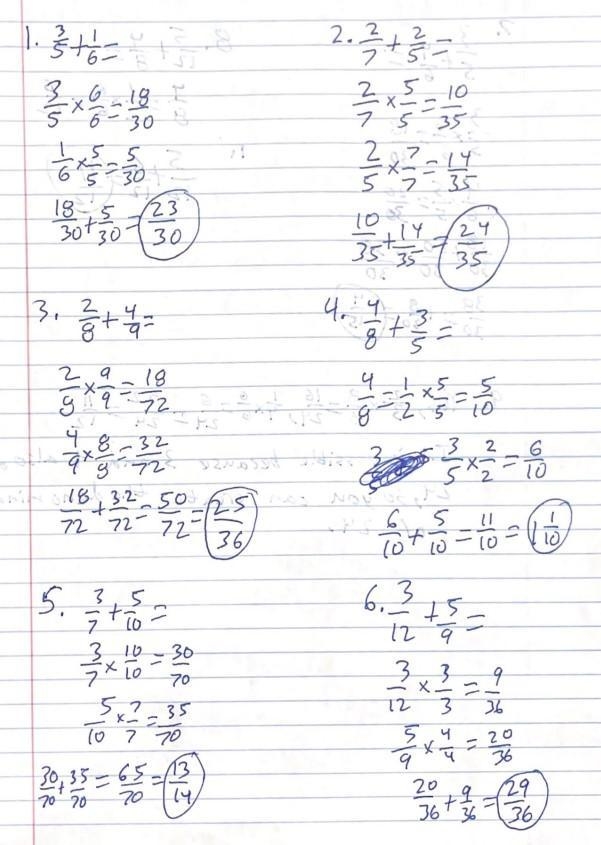 1. 3/5 + 1/6 =
3/5 × 6/6 = 18/30
1/6 × 5/5 = 5/30
18/30 + 5/30 = 23/30
2. 2/7 + 2/5 =
2/7 × 5/5 = 10/35
2/5 × 7/7 = 14/35
10/35 + 14/35 = 24/35
3. 2/8 + 4/9 =
2/8 × 9/9 = 18/72
4/9 × 8/8 = 32/72
18/72 + 32/72 = 50/72 = 25/36
4. 4/8 + 3/5 =
4/8 = 1/2 × 5/5 = 5/10
= 3/5 × 2/2 = 6/10
6/10 + 5/10 = 11/10 = 1 1/10
5. 3/7 + 5/10 =
3/7 × 10/10 = 30/70
5/10 × 7/7 = 35/70
30/70 + 35/70 = 65/70 = 13/14
6. 3/12 + 5/9 =
3/12 × 3/3 = 9/36
5/9 × 4/4 = 20/36
20/36 + 9/36 = 29/36